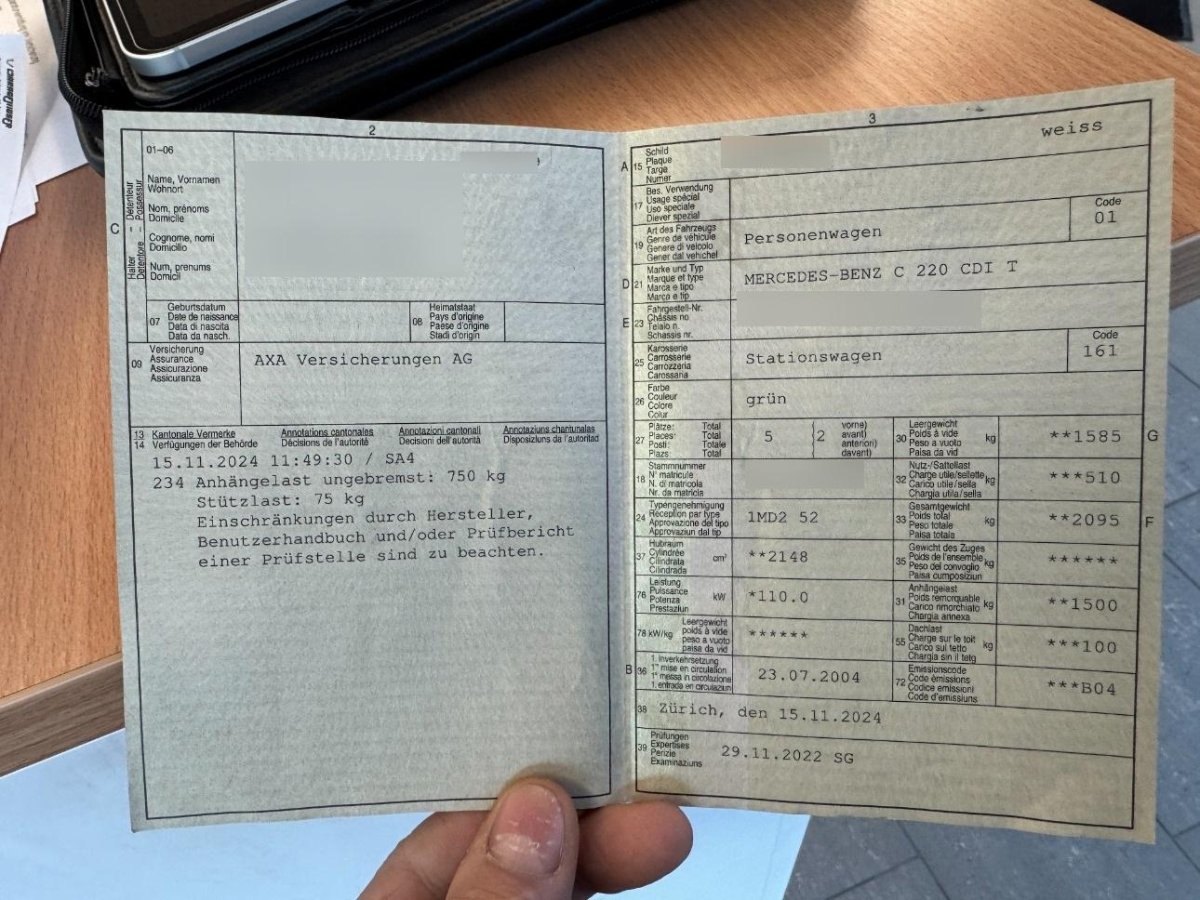 2
01-06
Name, Vornamen
Wohnort
Nom, prénoms
Domicile
Cognome, nomi
Domicilio
Num, prenums
Domicil
C
Halter - Détenteur
Detentore - Possessur
07
Geburtsdatum
Date de naissance
Data di nascita
Data da nasch.
08
Heimatstaat
Pays d'origine
Paese d'origine
Stadi d'origin
09
Versicherung
Assurance
Assicurazione
Assicuranza
AXA Versicherungen AG
13 Kantonale Vermerke Annotations cantonales Annotazioni cantonali Annotaziuns chantunalas
14 Verfügungen der Behörde Décisions de l'autorité Decisioni dell'autorità Disposiziuns da l'autoritad
15.11.2024 11:49:30 / SA4
234 Anhängelast ungebremst: 750 kg
Stützlast: 75 kg
Einschränkungen durch Hersteller,
Benutzerhandbuch und/oder Prüfbericht
einer Prüfstelle sind zu beachten.
3
A 15
Schild
Plaque
Targa
Numer
weiss
17
Bes. Verwendung
Usage spécial
Uso speciale
Diever spezial
19
Art des Fahrzeugs
Genre de véhicule
Genere di veicolo
Gener dal vehichel
Personenwagen
Code
01
D 21
Marke und Typ
Marque et type
Marca e tipo
Marca e tip
MERCEDES-BENZ C 220 CDI T
E 23
Fahrgestell-Nr.
Châssis no
Telaio n.
Schassis nr.
25
Karosserie
Carrosserie
Carrozzeria
Carossaria
Stationswagen
Code
161
26
Farbe
Couleur
Colore
Colur
grün
27
Plätze: Total
Places: Total
Posti: Totale
Plazs: Total
5
(2
vorne)
avant)
anteriori)
davant)
30
Leergewicht
Poids à vide
Peso a vuoto
Paisa da vid
kg
**1585
G
18
Stammnummer
N° matricule
N. di matricola
Nr. da matricla
32
Nutz-/Sattellast
Charge utile/sellette
Carico utile/sella
Chargia utila/sella
kg
***510
24
Typengenehmigung
Réception par type
Approvazione del tipo
Approvaziun dal tip
1MD2 52
33
Gesamtgewicht
Poids total
Peso totale
Paisa totala
kg
**2095
F
37
Hubraum
Cylindrée
Cilindrata
Cilindrada
cm³
**2148
35
Gewicht des Zuges
Poids de l'ensemble
Peso del convoglio
Paisa cumposiziun
kg
******
76
Leistung
Puissance
Potenza
Prestaziun
kW
*110.0
31
Anhängelast
Poids remorquable
Carico rimorchiato
Chargia annexa
kg
**1500
78 kW/kg
Leergewicht
poids à vide
peso a vuoto
paisa da vid
******
55
Dachlast
Charge sur le toit
Carico sul tetto
Chargia sin il tetg
kg
***100
B 36
1. Inverkehrsetzung
1re mise en circulation
1a messa in circolazione
1. entrada en circulaziun
23.07.2004
72
Emissionscode
Code émissions
Codice emissioni
Code d'emissiuns
***B04
38
Zürich, den 15.11.2024
39
Prüfungen
Expertises
Perizie
Examinaziuns
29.11.2022 SG